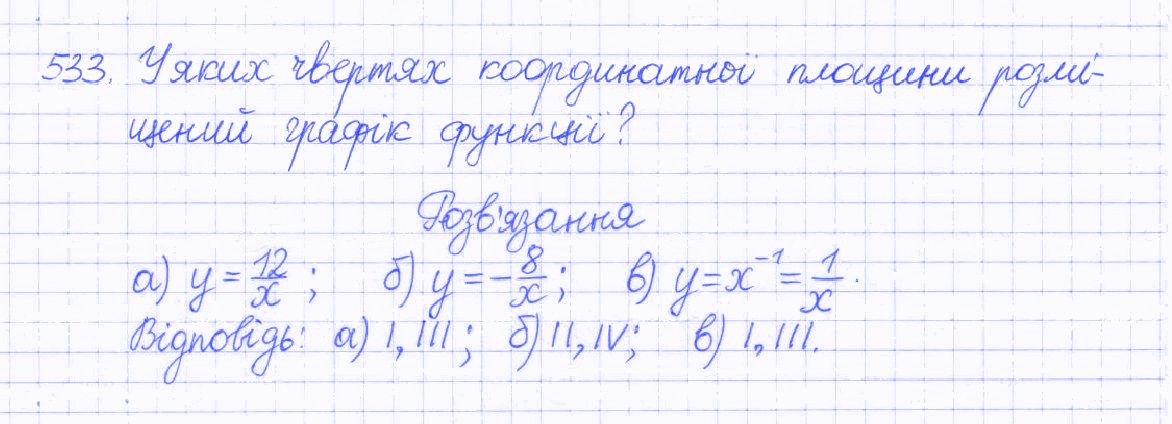 533. У яких чвертях координатної площини розмі-
щений графік функції?
Розв'язання
а) y = 12/x ; б) y = - 8/x ; в) y = x⁻¹ = 1/x .
Відповідь: а) I, III ; б) II, IV; в) I, III.